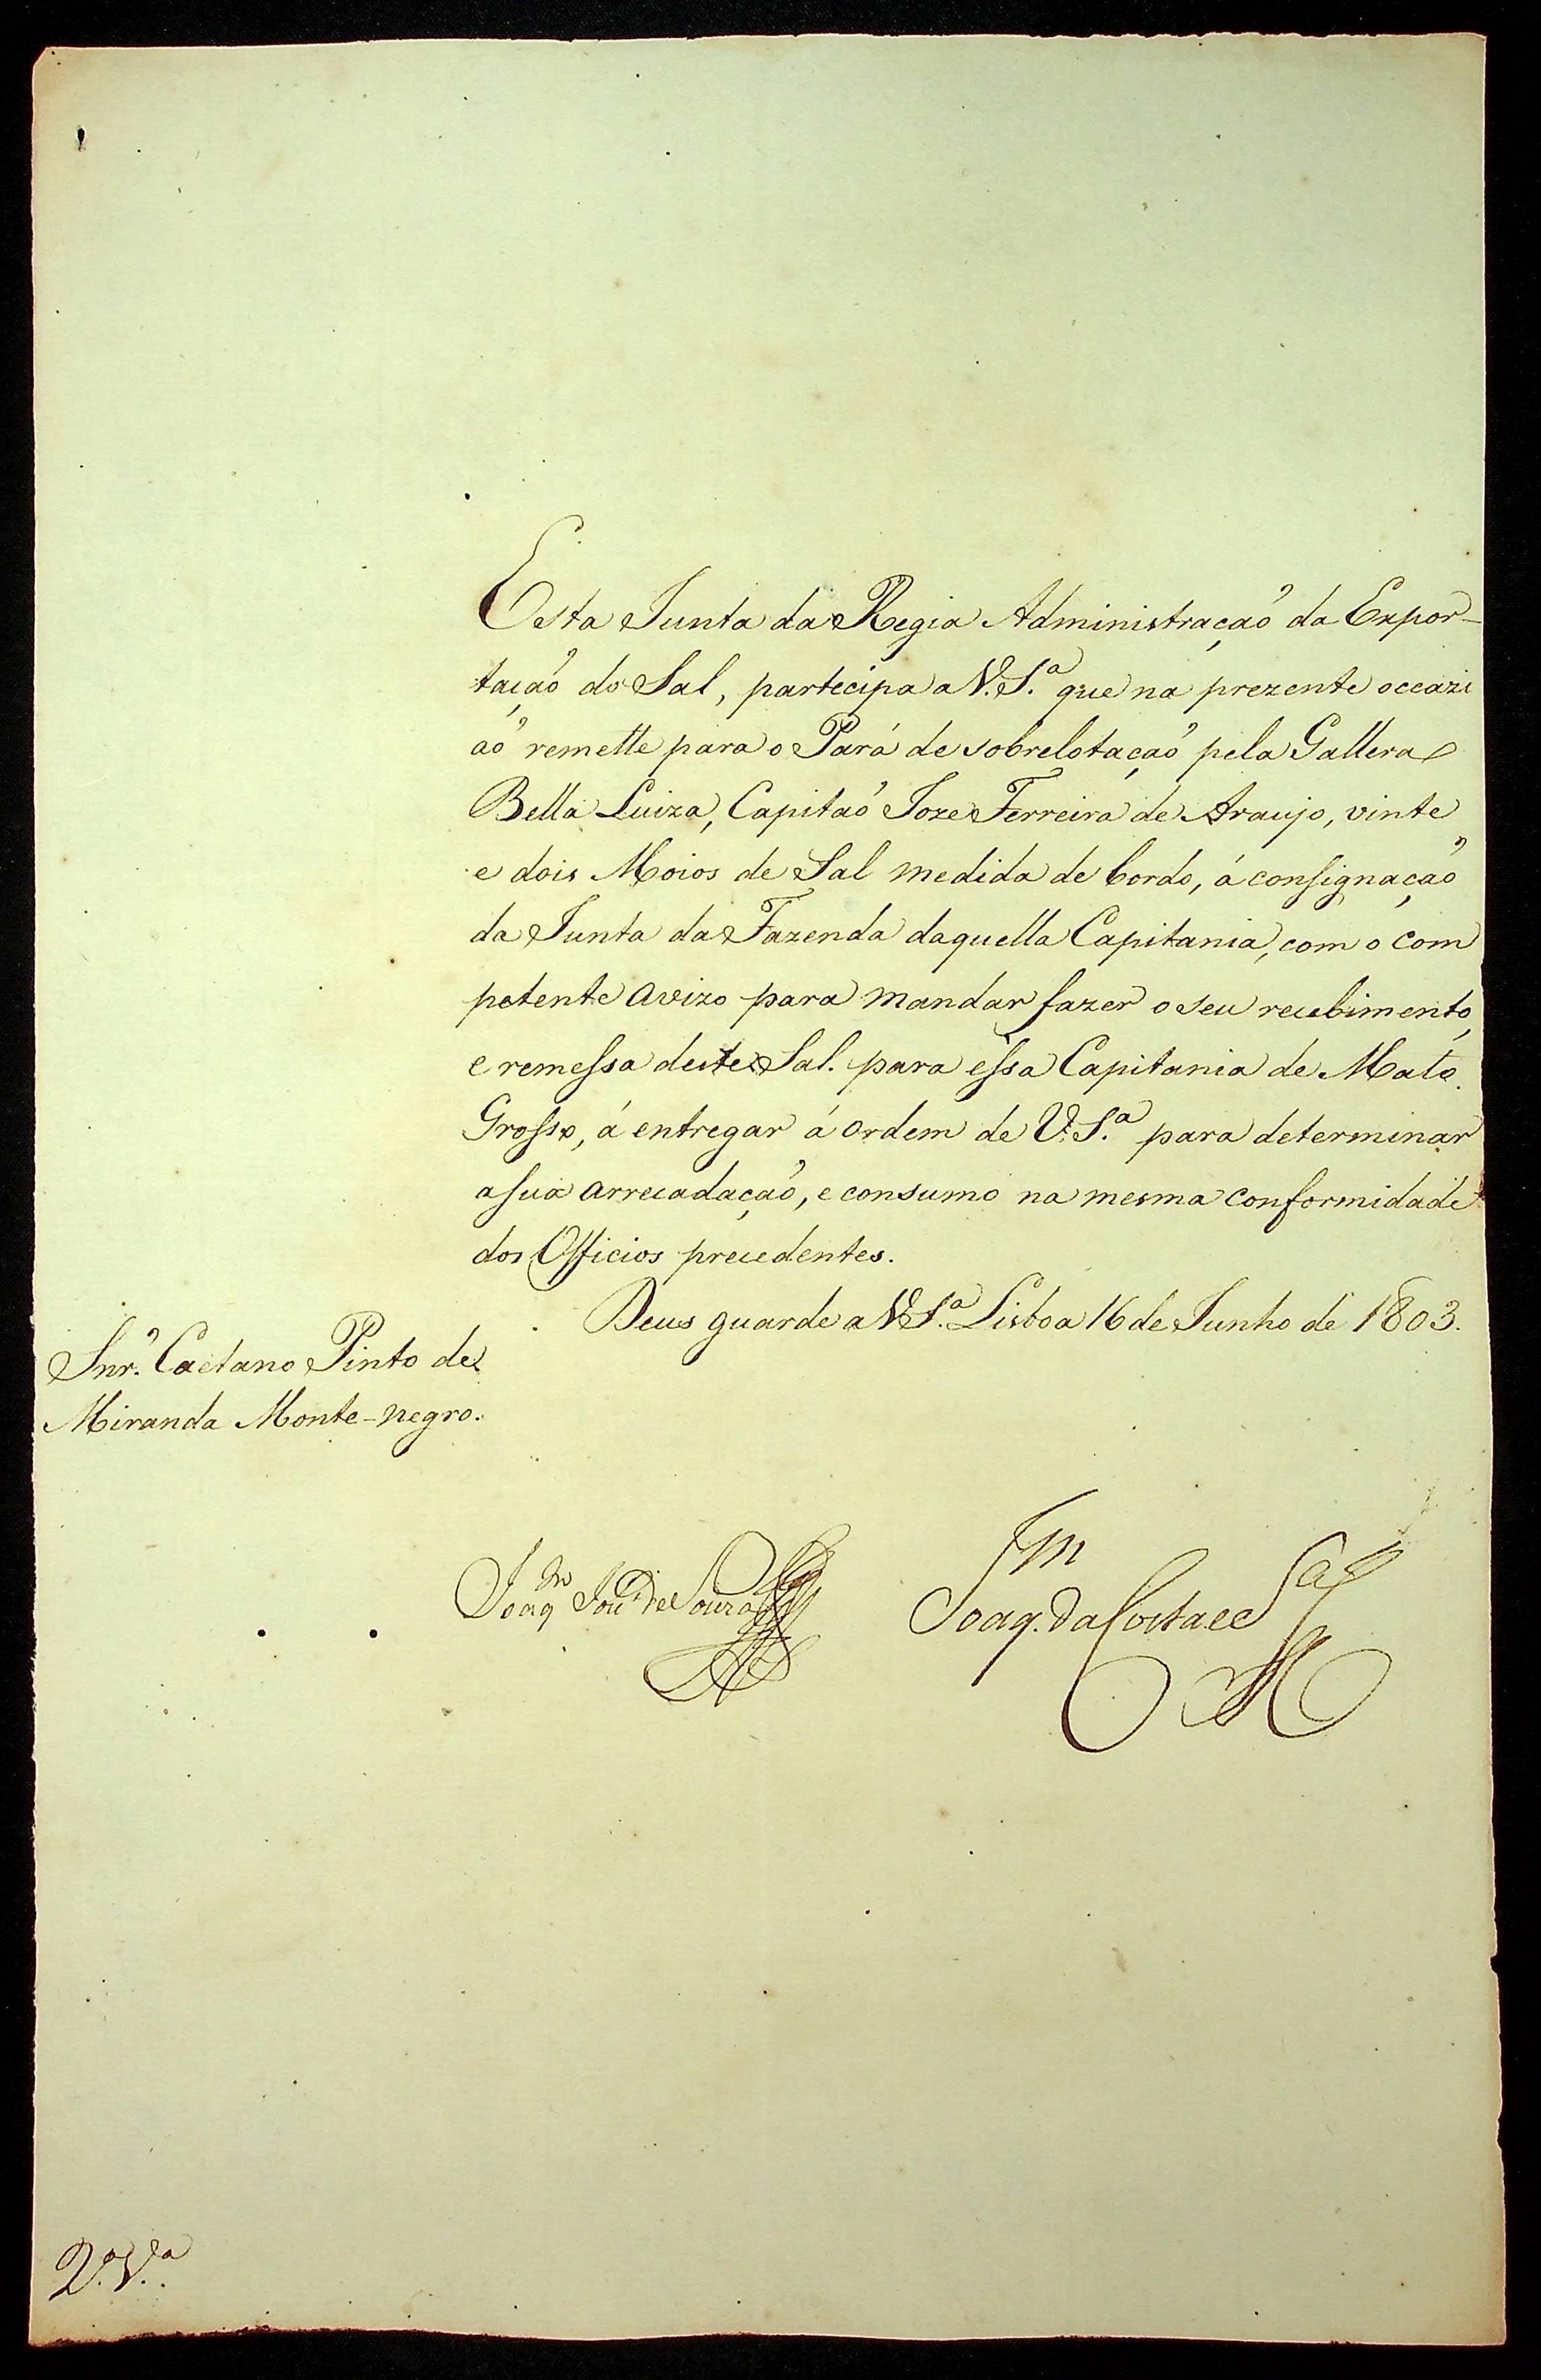 Esta Junta da Regia Administraçaõ da Expor-
taçaõ do Sal, partecipa a V.S.ª que na prezente occazi
aõ remette para o Pará de sobrelotaçaõ pela Gallera
Bella Luiza, Capitaõ Joze Ferreira de Araujo, vinte
e dois Moios de Sal medida de bordo, á consignaçaõ
da Junta da Fazenda daquella Capitania, com o com
petente avizo para mandar fazer o seu recebimento,
e remessa deste Sal. para essa Capitania de Mato
Grosso, á entregar á ordem de V.S.ª para determinar
a sua arrecadaçaõ, e consumo na mesma conformidade
dos Officios precedentes.
Deus guarde a V.S.ª Lisboa 16 de Junho de 1803.
Snr. Caetano Pinto de
Miranda Monte-negro.
Joaqm de Souza
Joaqm da Costa e Sª
2.ª V.ª